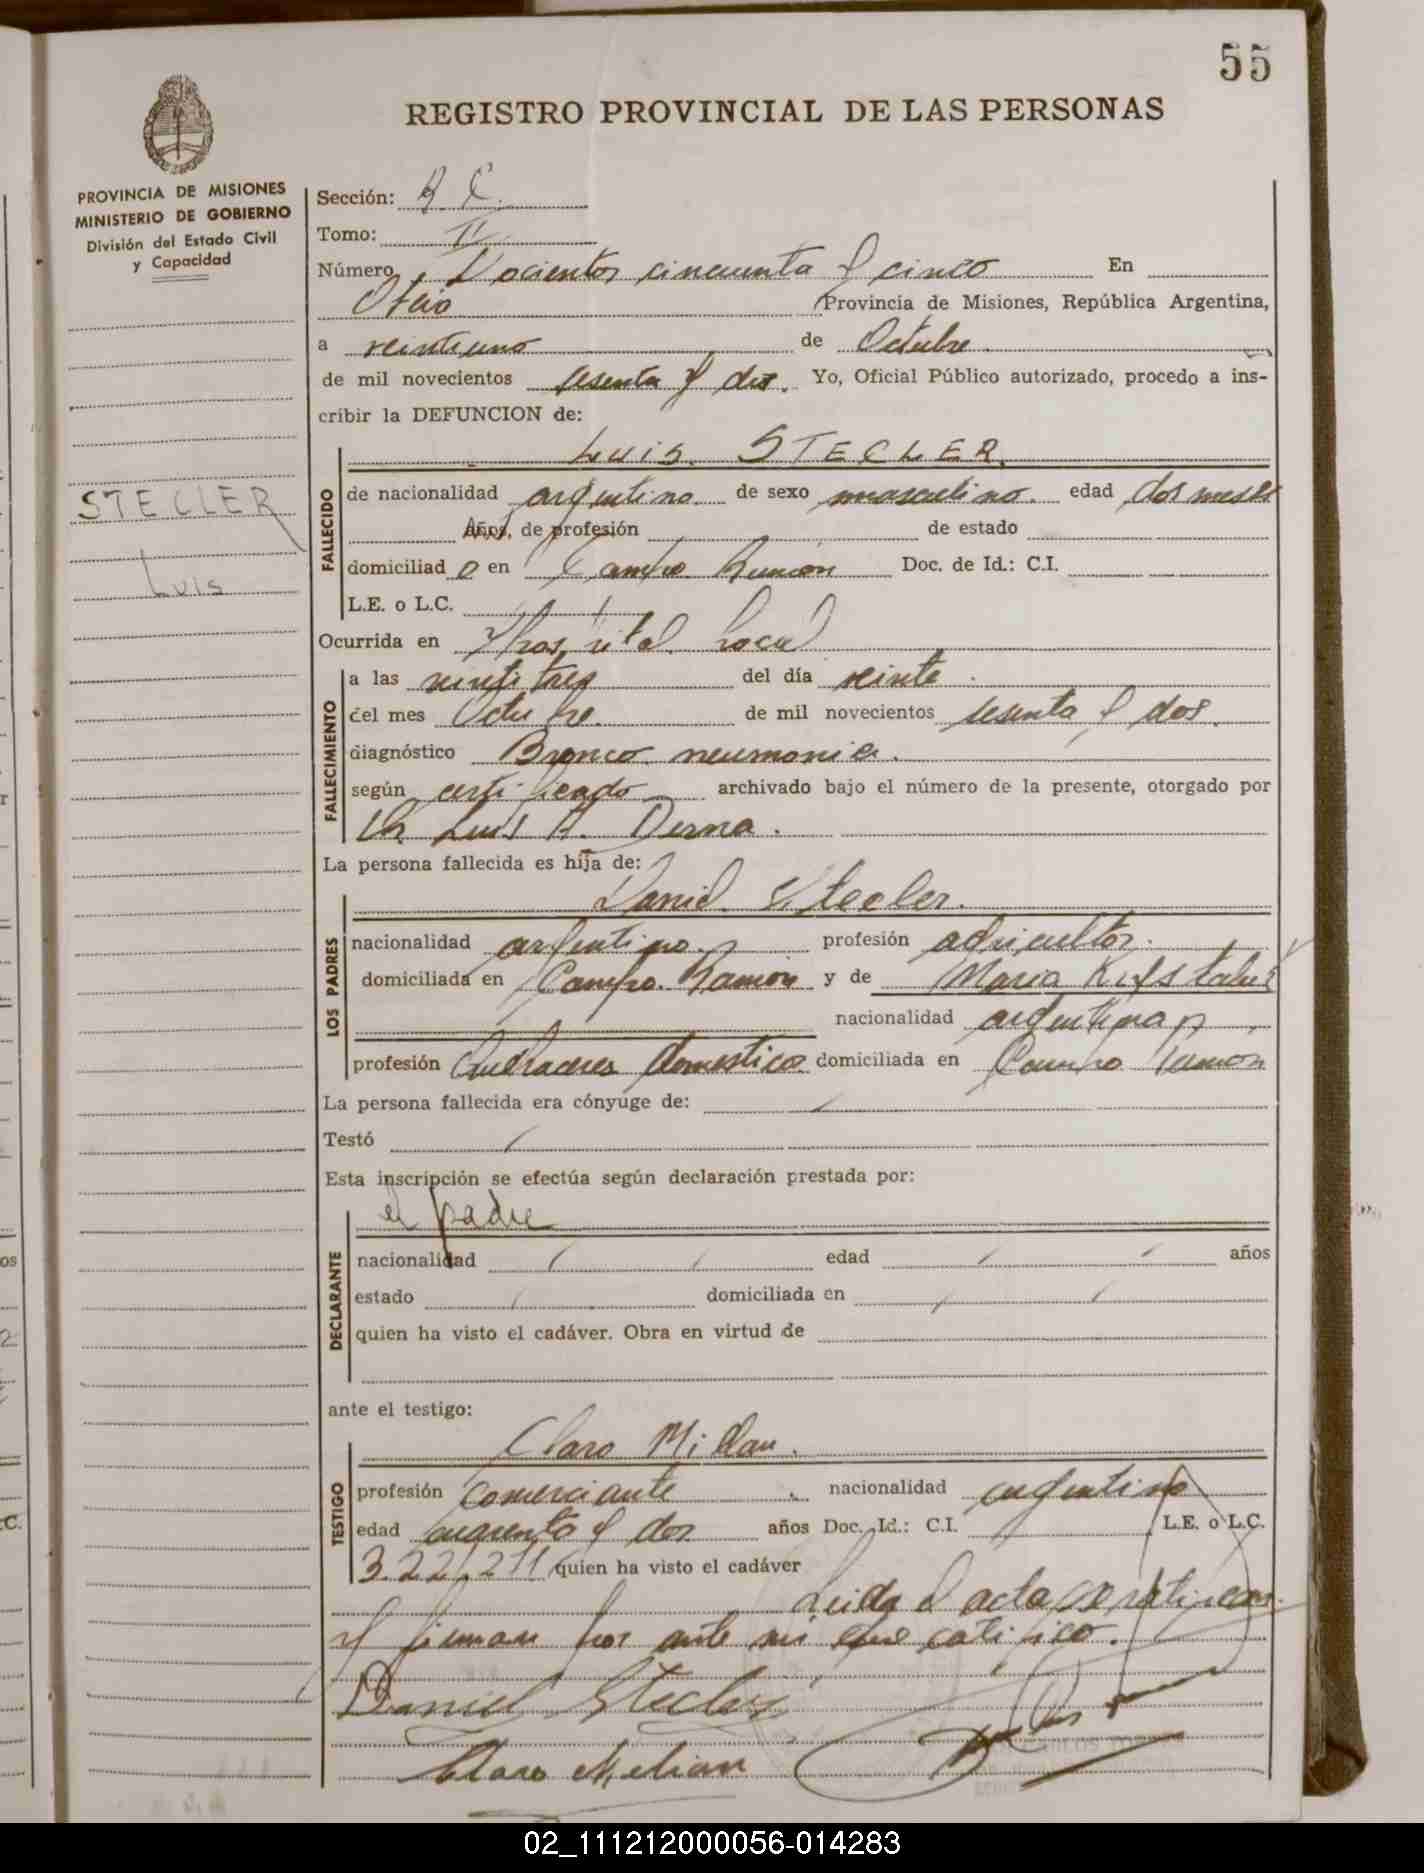 55
REGISTRO PROVINCIAL DE LAS PERSONAS
PROVINCIA DE MISIONES
MINISTERIO DE GOBIERNO
División del Estado Civil
y Capacidad
STECLER
Luis
Sección:
Tomo: II
Número Docientos cincuenta y cinco En
Provincia de Misiones, República Argentina,
a veintiuno de Octubre
de mil novecientos sesenta y dos. Yo, Oficial Público autorizado, procedo a ins-
cribir la DEFUNCION de:
FALLECIDO
Luis STECLER.
de nacionalidad argentina de sexo masculino. edad dos meses
años, de profesión de estado
domiciliad o en Campo Ramón Doc. de Id.: C.I.
L.E. o L.C.
Ocurrida en Hospital Local
FALLECIMIENTO
a las veintitres del día veinte
del mes Octubre. de mil novecientos sesenta y dos.
diagnóstico Bronco neumonia.
según certificado archivado bajo el número de la presente, otorgado por
Dr. Luis A. Derna.
La persona fallecida es hija de:
LOS PADRES
Daniel Stecler.
nacionalidad argentino profesión agricultor.
domiciliada en Campo Ramón y de Maria
nacionalidad argentina
profesión Quehaceres domestico domiciliada en Campo Ramón
La persona fallecida era cónyuge de:
Testó
Esta inscripción se efectúa según declaración prestada por:
DECLARANTE
el padre
nacionalidad edad años
estado domiciliada en
quien ha visto el cadáver. Obra en virtud de
ante el testigo:
TESTIGO
Claro Milan.
profesión comerciante nacionalidad argentino
edad cuarenta y dos años Doc. Id.: C.I. L.E. o L.C.
3.221.211 quien ha visto el cadáver
Leida el acta se ratifican
y firman por ante mi que certifico.
Daniel Stecler
Claro Milian
02_111212000056-014283